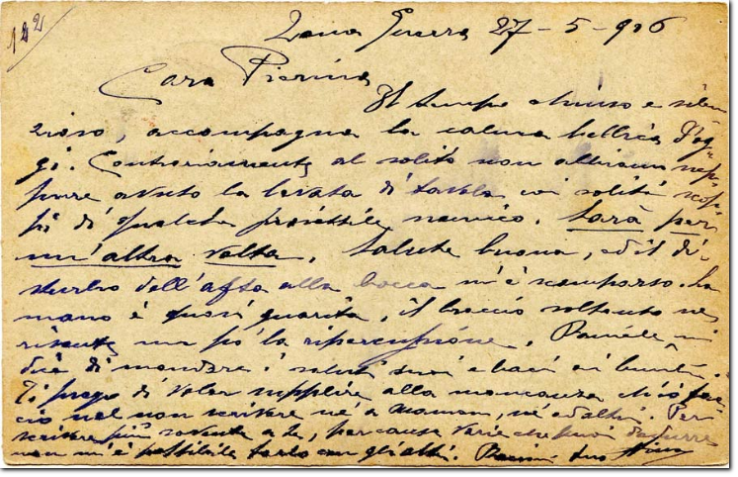 122
Zona Guerra 27-5-916
Cara Pierina
Il tempo chiuso e silen
zioso, accompagna la calma bellica d'og
gi. Contrariamente al solito non abbiam nep
pure avuto la levata di tavola coi soliti scop
pi di qualche proiettile nemico. Sarà per
un'altra volta. Salute buona, ed il di
sturbo dell'afta alla bocca m'è scomparso. La
mano è quasi guarita, il braccio soltanto ne
risente un pò la ripercussione. mi
dice di mandare i saluti suoi e baci ai bimbi.
Ti prego di voler supplire alla mancanza ch'io fac
cio nel non scrivere nè a Maman, nè ad altri. Per
scrivere più sovente a te, per cause varie che puoi dedurre
non m'è possibile farlo con gli altri. Bacioni tuo